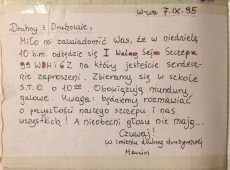 W-wa 7.IX.95
Druhny i Druhowie,
Miło mi zawiadomić Was, że w niedzielę
10 bm. odbędzie się I Walny Sejm Szczepu
99 WDH i GZ na który jesteście serdecz-
nie zaproszeni. Zbieramy się w szkole
S.T.O. o 10⁰⁰. Obowiązują mundury
galowe. Uwaga: będziemy rozmawiać
o przyszłości naszego szczepu i nas
wszystkich! A nieobecni głosu nie mają...
Czuwaj!
w imieniu drużyny
Marcin